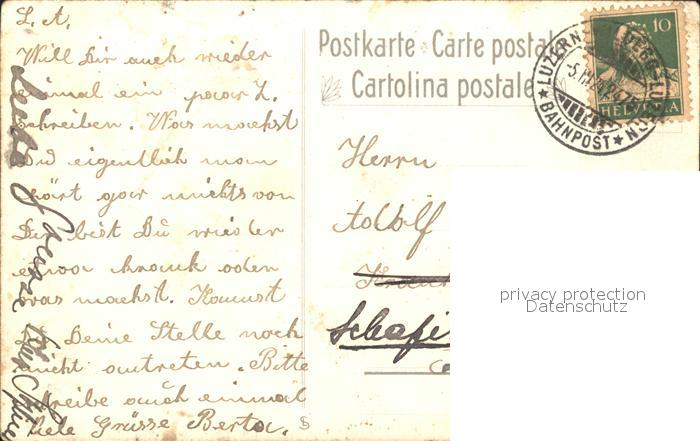 L. A.
Will Dir auch wieder
einmal ein paar Z.
schreiben. Was machst
Du eigentlich man
hört gar nichts von
Dir bist Du wieder
etwa krank oder
was machst. Kannst
Du Deine Stelle noch
nicht antreten. Bitte
schreibe auch einmal
Viele Grüsse Berta.
Postkarte Carte postale
Cartolina postale
Herrn
Adolf
LUZERN
BAHNPOST
10
HELVETIA
privacy protection
Datenschutz